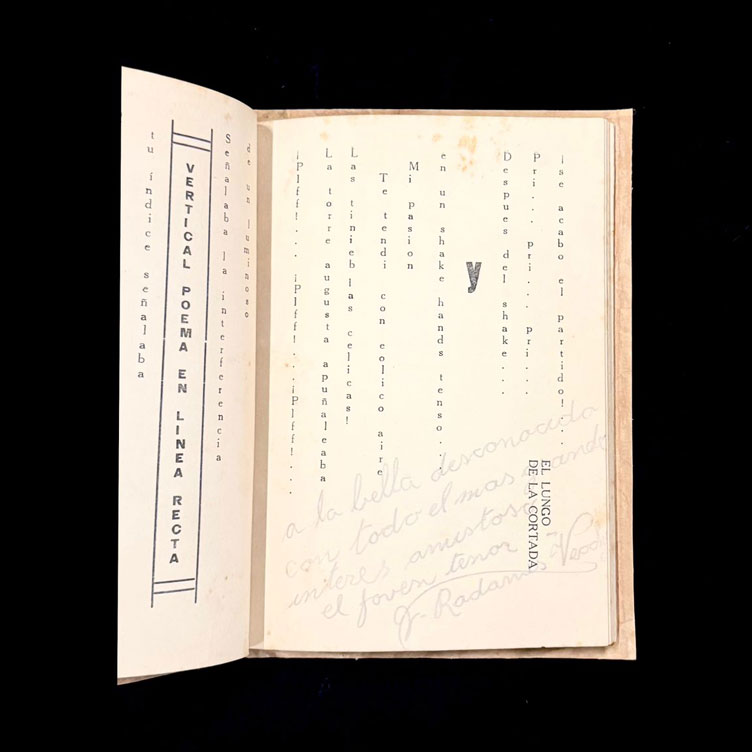 tu índice señalaba
VERTICAL POEMA EN LINEA RECTA
Señalaba la interferencia
de un luminoso
¡Plff!... ¡Plff!... ¡Plff!...
La torre augusta apuñaleaba
Las tinieb las celicas!
Te tendi con eolico aire
Mi pasion
en un shake hands tenso...
y
Despues del shake...
Pri... pri... pri...
¡se acabo el partido!...
EL LUNGO
DE LA CORTADA
a la bella desconocida
con todo el mas grande
interes amistoso
el joven tenor